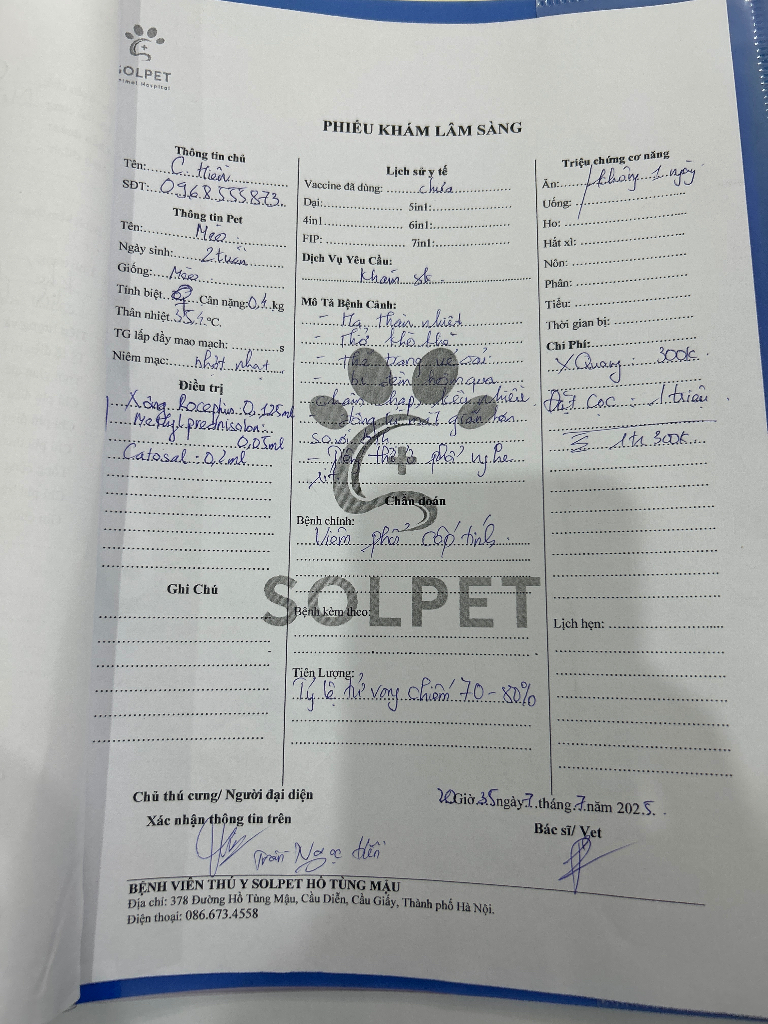 SOLPET
Animal Hospital
PHIẾU KHÁM LÂM SÀNG
Thông tin chủ
Tên: C Hiền
SĐT: 0968555873
Thông tin Pet
Tên: Mèo
Ngày sinh: 2 tuần
Giống: Mèo
Tính biệt: Cân nặng: 0,1 kg
Thân nhiệt 35,4 °C.
TG lấp đầy mao mạch: s
Niêm mạc: nhợt nhạt
Điều trị
Xông Rocephin 0,125ml
Methyl prednisolon:
0,05ml
Catosal: 0,2ml
Ghi Chú
Lịch sử y tế
Vaccine đã dùng: chưa
Dại: 5in1:
4in1 6in1:
FIP: 7in1:
Dịch Vụ Yêu Cầu:
Khám sk
Mô Tả Bệnh Cảnh:
- Hạ thân nhiệt
- Thở khò khè
- bị đêm hôm qua
- phổi nghe
rít
Chẩn đoán
Bệnh chính:
Viêm phổi cấp tính
SOLPET
Bệnh kèm theo:
Tiên Lượng:
Tỷ lệ tử vong chiếm 70 - 80%
Triệu chứng cơ năng
Ăn: không 1 ngày
Uống:
Ho:
Hắt xì:
Nôn:
Phân:
Tiểu:
Thời gian bị:
Chi Phí:
X Quang: 300k
Đặt cọc: 1 triệu
Σ 1tr300k
Lịch hẹn:
Chủ thú cưng/ Người đại diện
Xác nhận thông tin trên
Trần Ngọc Hiền
20 Giờ 35 ngày 7 tháng 7 năm 2025.
Bác sĩ/ Vet
BỆNH VIÊN THÚ Y SOLPET HỒ TÙNG MẬU
Địa chỉ: 378 Đường Hồ Tùng Mậu, Cầu Diễn, Cầu Giấy, Thành phố Hà Nội.
Điện thoại: 086.673.4558